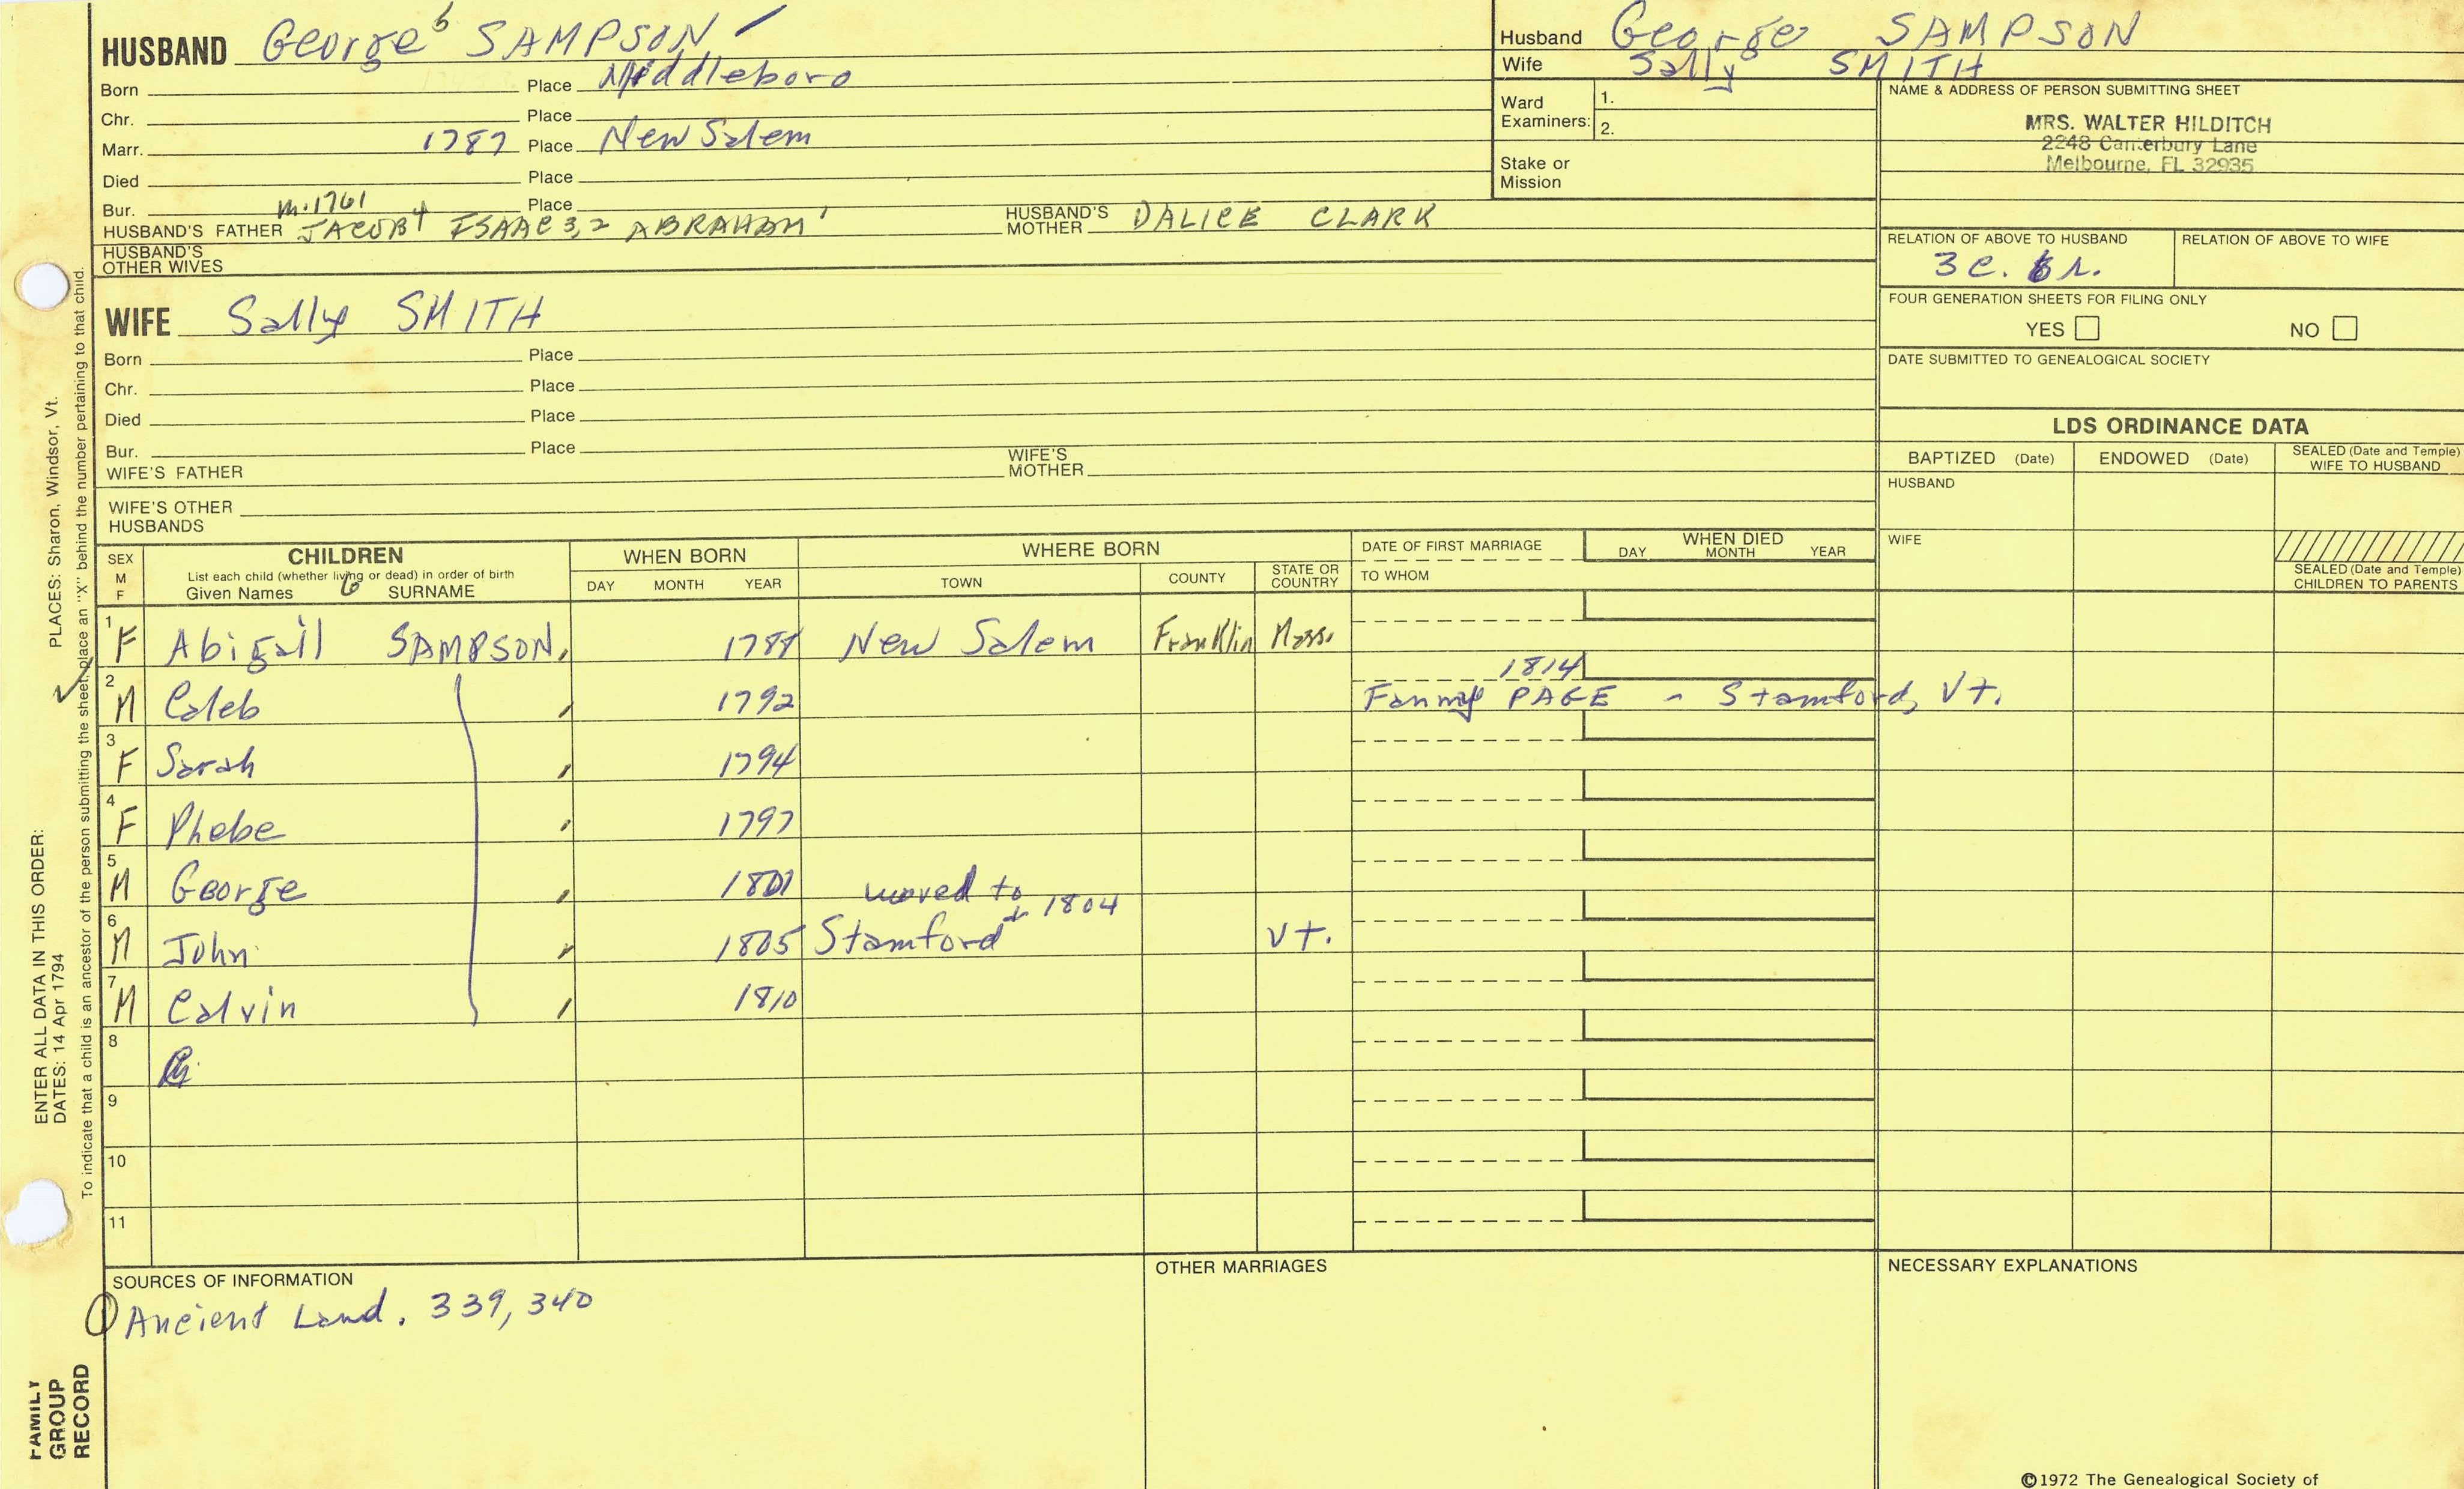 HUSBAND George⁵ SAMPSON
Born Place Middleboro
Chr. Place
Marr. 1787 Place New Salem
Died Place
Bur. Place
m. 1761
HUSBAND'S FATHER JACOB⁴ ISAAC 3,2 ABRAHAM¹ HUSBAND'S MOTHER DALICE CLARK
HUSBAND'S OTHER WIVES
Husband George SAMPSON
Wife Sally SMITH
Ward Examiners: 1.
2.
Stake or Mission
NAME & ADDRESS OF PERSON SUBMITTING SHEET
MRS. WALTER HILDITCH
2248 Canterbury Lane
Melbourne, FL 32935
RELATION OF ABOVE TO HUSBAND RELATION OF ABOVE TO WIFE
3 c. 6 r.
FOUR GENERATION SHEETS FOR FILING ONLY
YES NO
DATE SUBMITTED TO GENEALOGICAL SOCIETY
WIFE Sally SMITH
Born Place
Chr. Place
Died Place
Bur. Place
WIFE'S FATHER WIFE'S MOTHER
WIFE'S OTHER HUSBANDS
LDS ORDINANCE DATA
BAPTIZED (Date) ENDOWED (Date) SEALED (Date and Temple) WIFE TO HUSBAND
HUSBAND
WIFE
SEALED (Date and Temple) CHILDREN TO PARENTS
SEX M F
CHILDREN
List each child (whether living or dead) in order of birth
Given Names 6 SURNAME
WHEN BORN
DAY MONTH YEAR
WHERE BORN
TOWN COUNTY STATE OR COUNTRY
DATE OF FIRST MARRIAGE
TO WHOM
WHEN DIED
DAY MONTH YEAR
1 F Abigail SAMPSON New Salem Franklin Mass.
1814
2 M Caleb 1792 Fanny PAGE - Stamford, Vt.
3 F Sarah 1794
4 F Phebe 1797
5 M George 1801 moved to
1804
6 M John 1805 Stamford Vt.
7 M Calvin 1810
8
9
10
11
SOURCES OF INFORMATION
① Ancient Land. 339, 340
OTHER MARRIAGES
NECESSARY EXPLANATIONS
©1972 The Genealogical Society of
PLACES: Sharon, Windsor, Vt.
To indicate that a child is an ancestor of the person submitting the sheet, place an "X" behind the number pertaining to that child.
ENTER ALL DATA IN THIS ORDER:
DATES: 14 Apr 1794
FAMILY
GROUP
RECORD